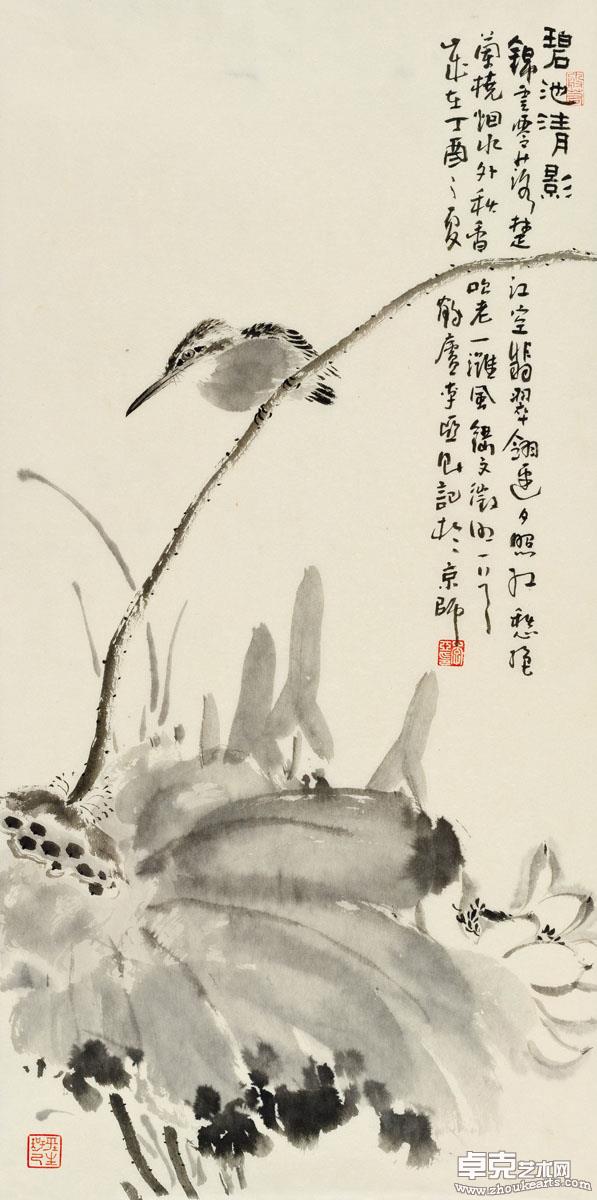 碧池清影
錦雲零落楚江空翡翠翎邊夕照紅愁絕
蘭橈烟水外秋香吹老一灘風文徵明
歲在丁酉之夏廬李記於京師
卓克艺术网
www.zhoukearts.com